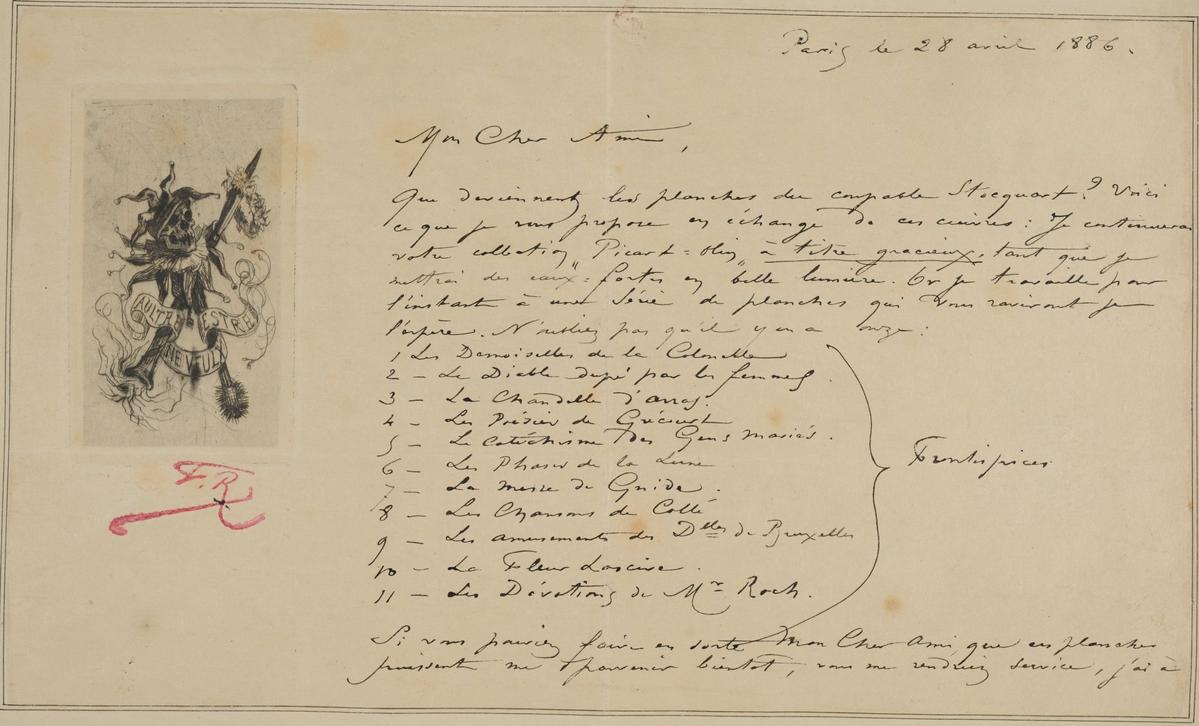 Paris le 28 avril 1886.
Mon Cher Ami,
Que deviennent les planches du coupable Stocquart? Voici
ce que je vous propose en échange de ces cuivres : Je continuerai
votre collection „Picard-Olin„ à titre gracieux, tant que je
mettrai des eaux-fortes en belle lumière. Or je travaille pour
l'instant à une série de planches qui vous raviront je
l'espère. N'oubliez pas qu'il y en a onze :
1 Les Demoiselles de la Colonelle
2 – Le Diable dupé par les femmes.
3 – La Chandelle d'arras.
4 – Les Poésies de Grécourt
5 – Le catéchisme des Gens mariés.
6 – Les Phases de la Lune
7 – La messe de Gnide.
8 – Les Chansons de Collé
9 – Les amusements des Dlles de Bruxelles
10 – La Fleur Lascive.
11 – Les Dévotions de Mr Roch.
Frontispices
Si vous pouviez faire en sorte Mon Cher Ami, que ces planches
puissent me parvenir bientôt, vous me rendriez service, j'ai à
AULTRE
ESTRE
NE VEULX
F.R